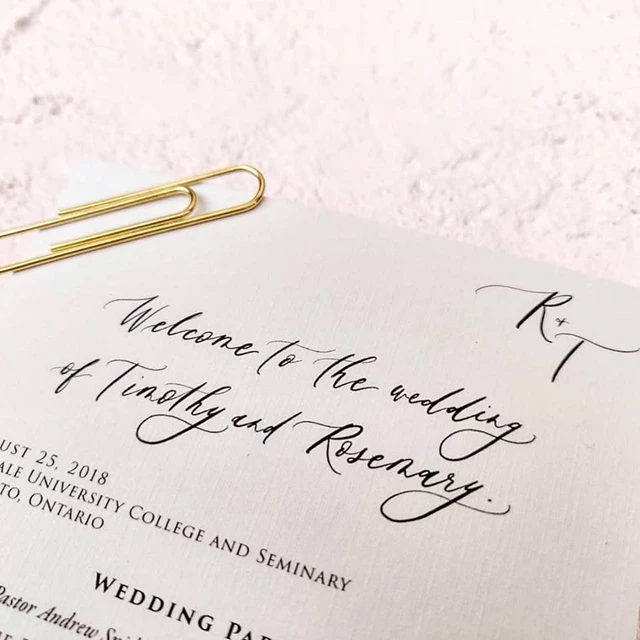 R+
T
Welcome to the wedding
of Timothy and Rosemary.
UST 25, 2018
ALE UNIVERSITY COLLEGE AND SEMINARY
TO, ONTARIO
WEDDING PAR
Pastor Andrew